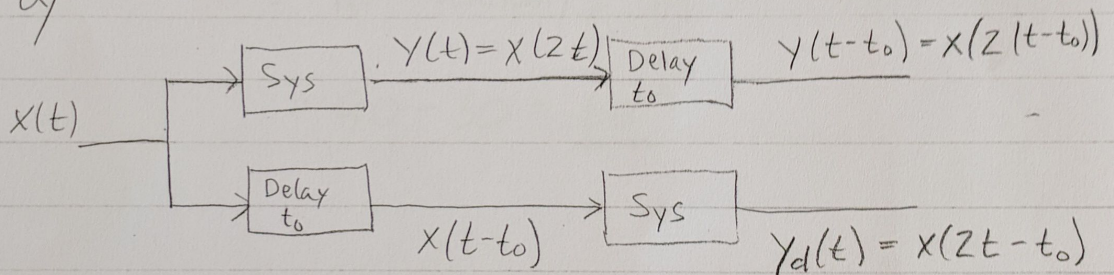 Sys
y(t) = x(2t)
Delay
t₀
y(t-t₀) = x(2(t-t₀))
x(t)
Delay
t₀
x(t-t₀)
Sys
y_d(t) = x(2t-t₀)